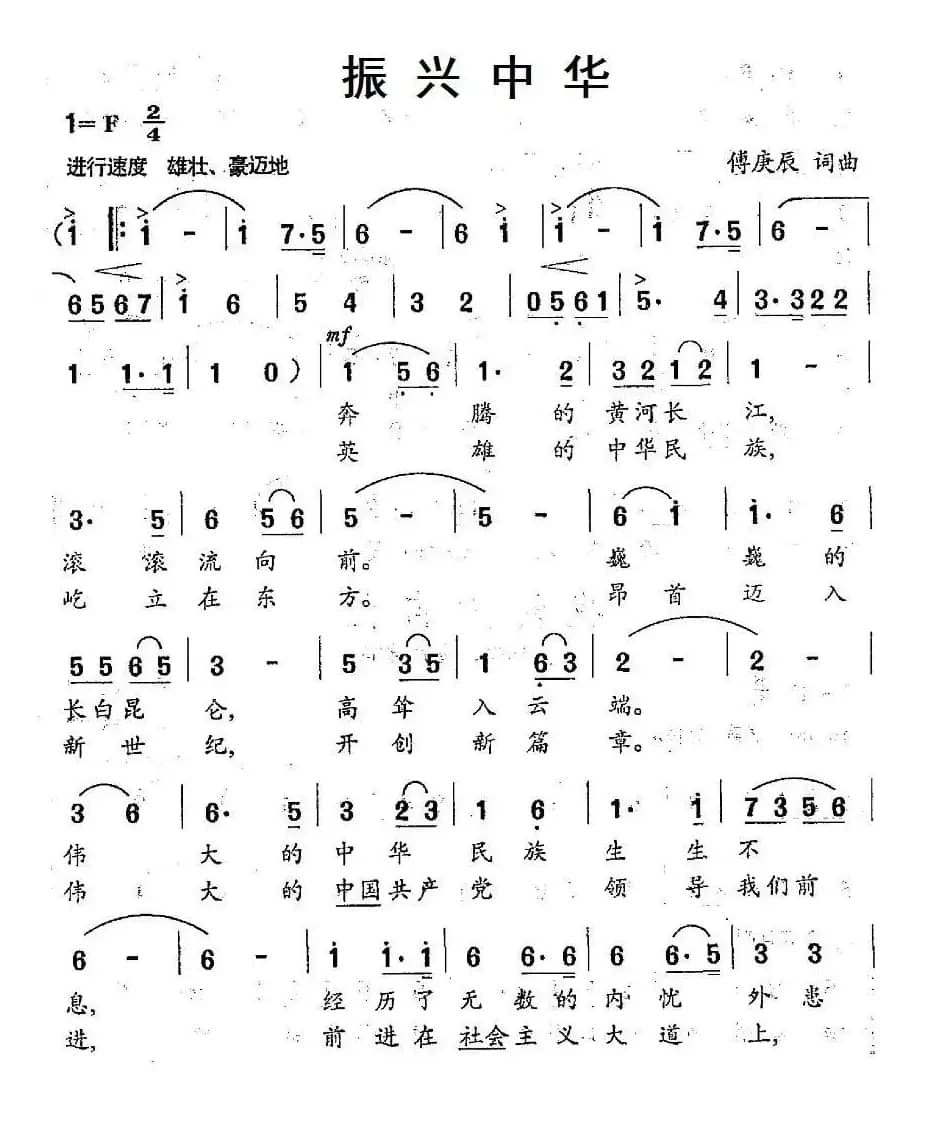 振兴中华
1=F 2/4
进行速度 雄壮、豪迈地
傅庚辰 词曲
(i |: i - | i 7·5 | 6 - | 6 i | i - | i 7·5 | 6 - |
6567 | i 6 | 5 4 | 3 2 | 0561 | 5· 4 | 3·322 |
mf
1 1·1 | 1 0) | 1 56 | 1· 2 | 3212 | 1 - |
奔 腾 的 黄河长 江,
英 雄 的 中华民 族,
3· 5 | 6 56 | 5 - | 5 - | 6 i | i· 6 |
滚 滚 流 向 前。 巍 巍 的
屹 立 在 东 方。 昂 首 迈 入
5565 | 3 - | 5 35 | 1 63 | 2 - | 2 - |
长白昆 仑, 高 耸 入 云 端。
新 世 纪, 开 创 新 篇 章。
3 6 | 6· 5 | 3 23 | 1 6 | 1· i | 7356 |
伟 大 的 中 华 民 族 生 生 不
伟 大 的 中国共产 党 领 导 我们前
6 - | 6 - | i i·i | 6 6·6 | 6 6·5 | 3 3 |
息, 经 历 了 无 数 的 内 忧 外 患
进, 前 进 在 社会 主 义 大 道 上,